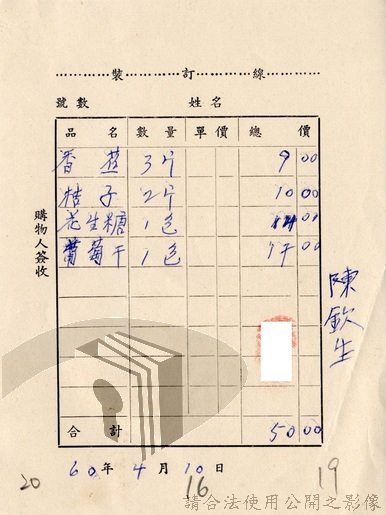 裝訂線
號數 姓名
品名 數量 單價 總價
香蕉 3斤 9 00
桔子 2斤 10 00
花生糖 1包 14 00
葡萄干 1包 17 00
合計 50 00
購物人簽收
陳欽生
60年4月10日
20 16 19
請合法使用公開之影像